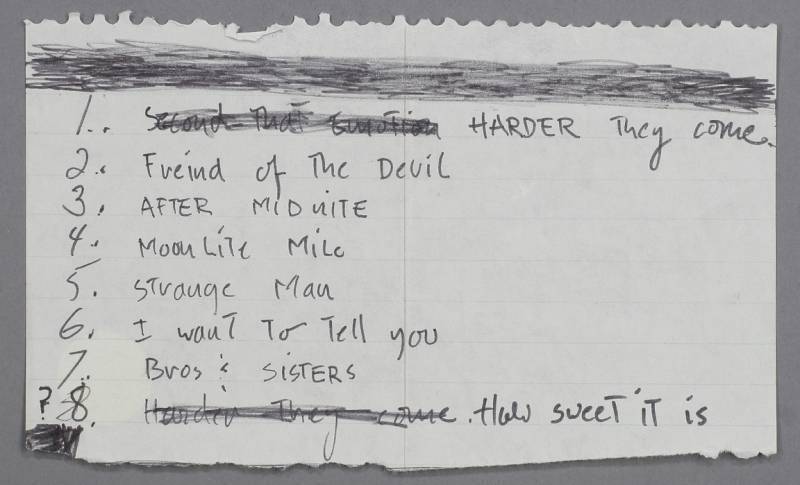 1. Second That Emotion HARDER They come.
2. Freind of The Devil
3. AFTER MIDNITE
4. MoonLite Mile
5. Strange Man
6. I want To Tell you
7. Bros & SISTERS
? 8. Harder They come. How sweet iT is